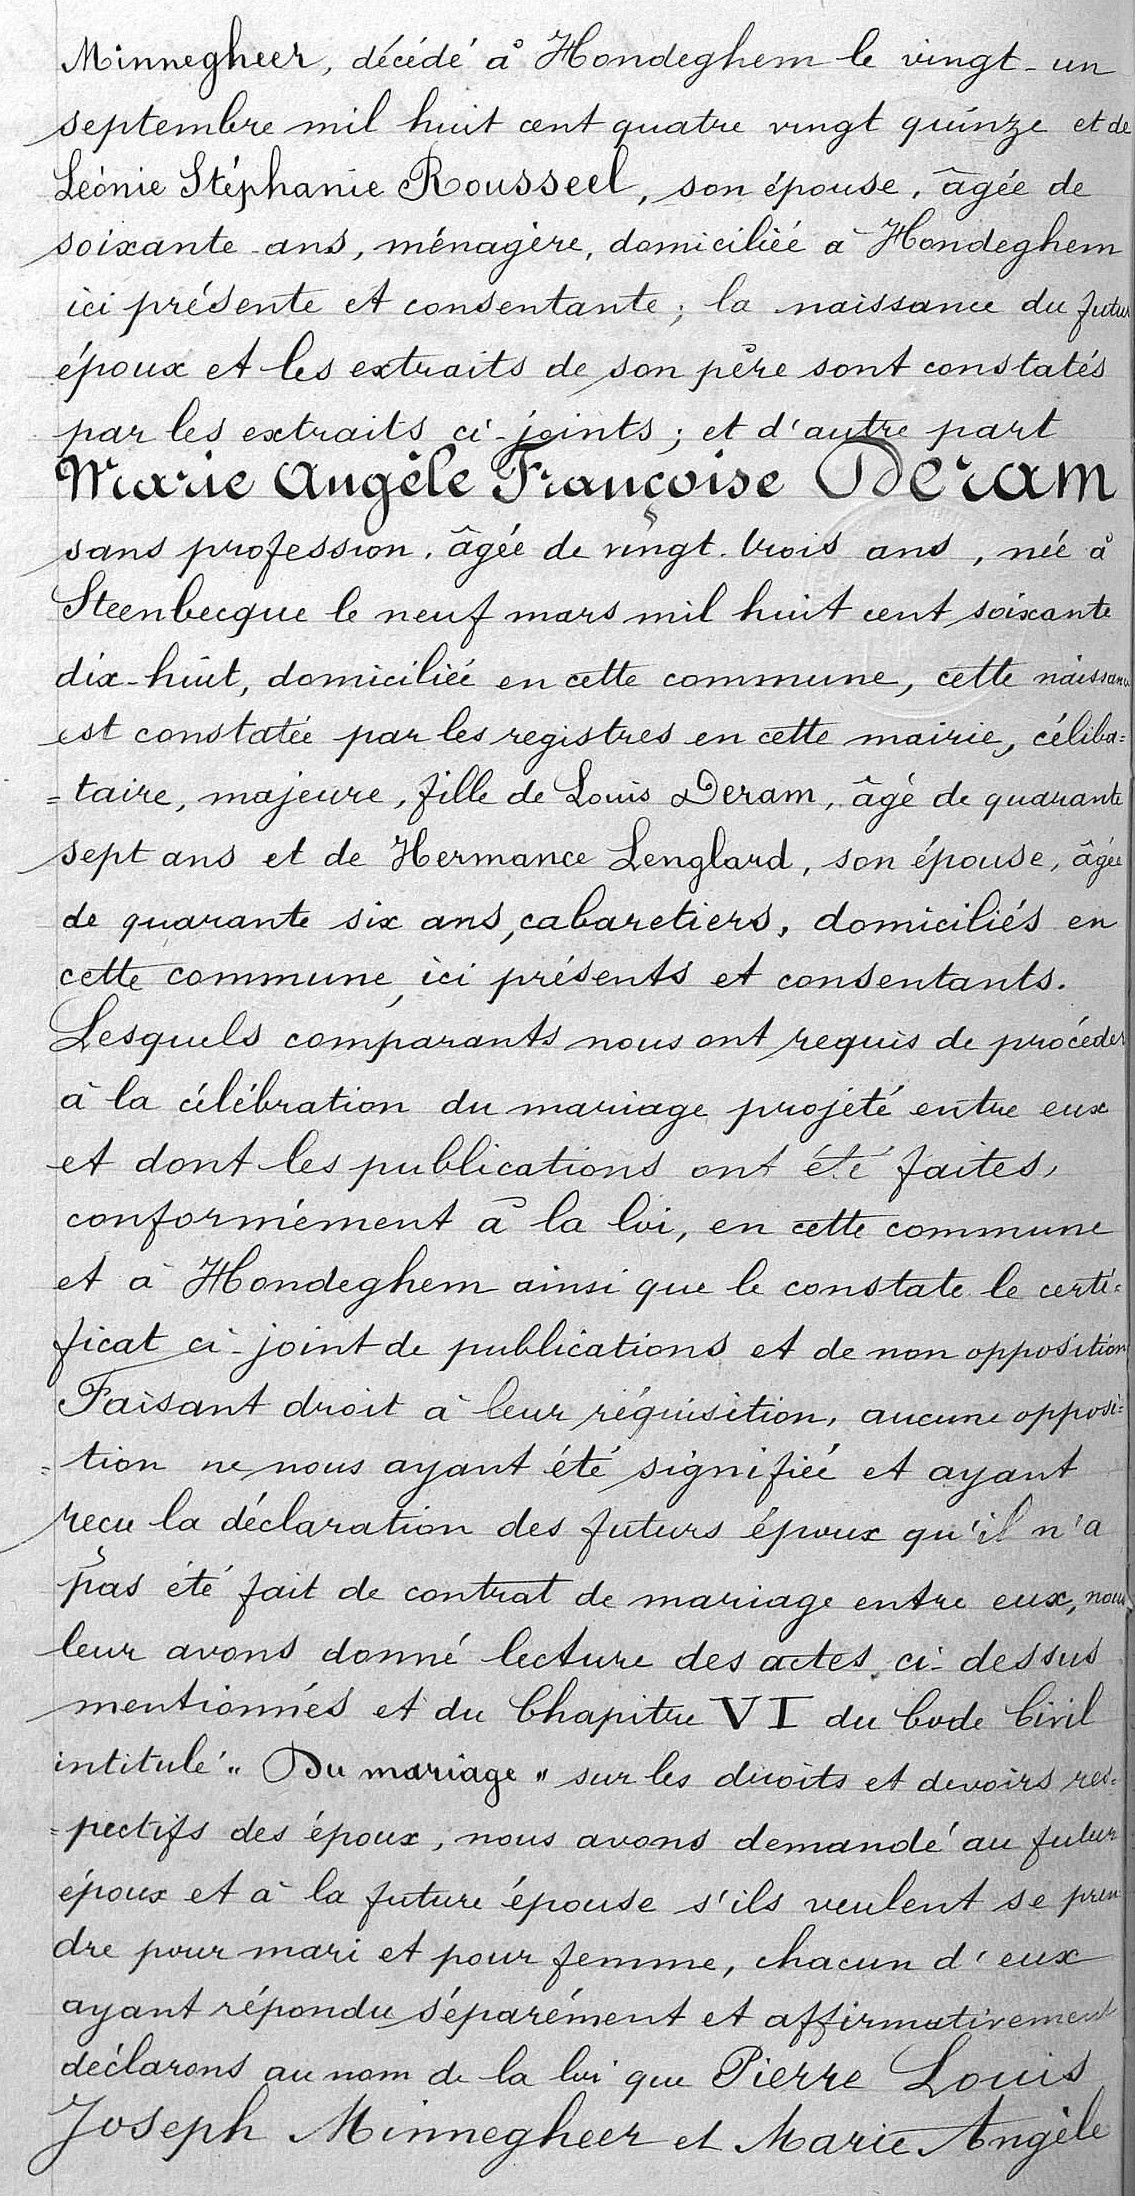 Minnegheer, décédé à Hondeghem le vingt-un
septembre mil huit cent quatre vingt quinze et de
Léonie Stéphanie Rousseel, son épouse, âgée de
soixante ans, ménagère, domiciliée à Hondeghem
ici présente et consentante ; la naissance du futur
époux et les extraits de son père sont constatés
par les extraits ci-joints ; et d'autre part
Marie Angèle Françoise Deram
sans profession, âgée de vingt-trois ans, née à
Steenbecque le neuf mars mil huit cent soixante
dix-huit, domiciliée en cette commune, cette naissance
est constatée par les registres en cette mairie, céliba=
=taire, majeure, fille de Louis Deram, âgé de quarante
sept ans et de Hermance Lenglard, son épouse, âgée
de quarante six ans, cabaretiers, domiciliés en
cette commune, ici présents et consentants.
Lesquels comparants nous ont requis de procéder
à la célébration du mariage projeté entre eux
et dont les publications ont été faites,
conformément à la loi, en cette commune
et à Hondeghem ainsi que le constate le certi=
ficat ci-joint de publications et de non opposition
Faisant droit à leur réquisition, aucune opposi=
=tion ne nous ayant été signifiée et ayant
reçu la déclaration des futurs époux qu'il n'a
pas été fait de contrat de mariage entre eux, nous
leur avons donné lecture des actes ci-dessus
mentionnés et du Chapitre VI du Code Civil
intitulé " Du mariage " sur les droits et devoirs res=
=pectifs des époux, nous avons demandé au futur
époux et à la future épouse s'ils veulent se pren
dre pour mari et pour femme, chacun d'eux
ayant répondu séparément et affirmativement
déclarons au nom de la loi que Pierre Louis
Joseph Minnegheer et Marie Angèle